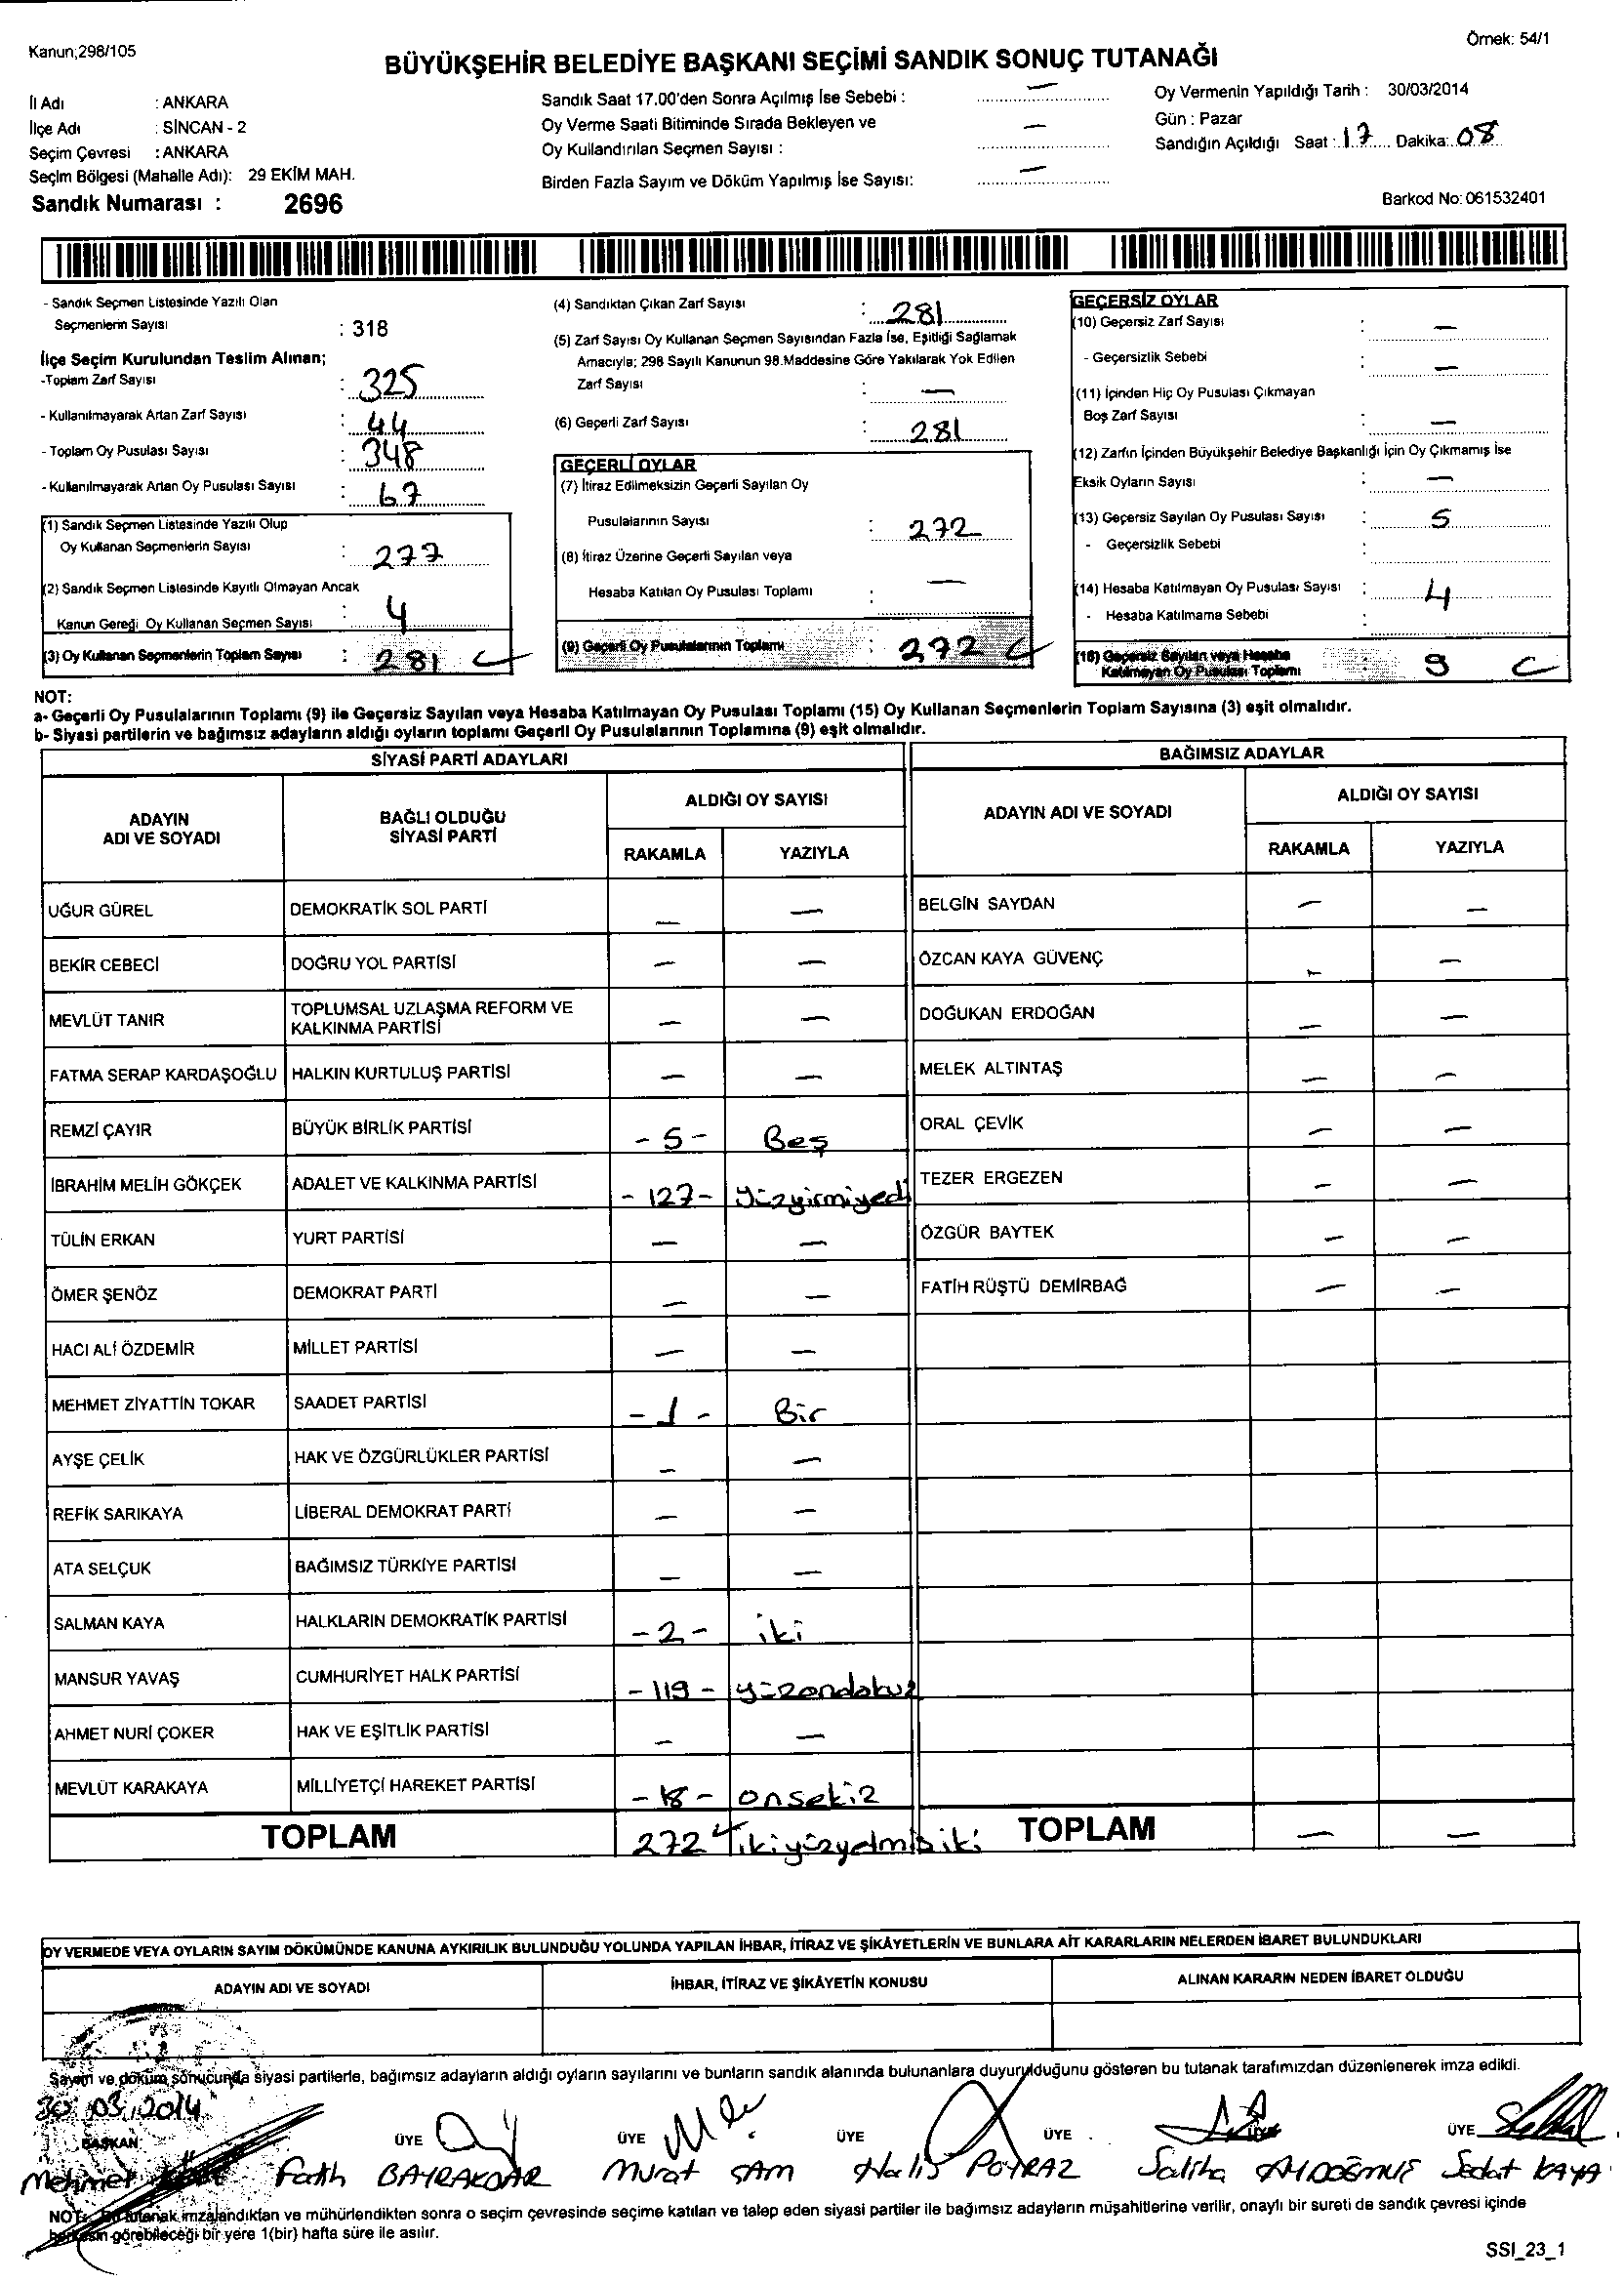 Kanun;298/105
Örnek: 54/1
BÜYÜKŞEHİR BELEDİYE BAŞKANI SEÇİMİ SANDIK SONUÇ TUTANAĞI
İl Adı : ANKARA
İlçe Adı : SİNCAN - 2
Seçim Çevresi : ANKARA
Seçim Bölgesi (Mahalle Adı): 29 EKİM MAH.
Sandık Numarası : 2696
Sandık Saat 17.00'den Sonra Açılmış İse Sebebi : —
Oy Verme Saati Bitiminde Sırada Bekleyen ve
Oy Kullandırılan Seçmen Sayısı : —
Birden Fazla Sayım ve Döküm Yapılmış İse Sayısı: —
Oy Vermenin Yapıldığı Tarih : 30/03/2014
Gün : Pazar
Sandığın Açıldığı Saat : 17 Dakika: 08
Barkod No: 061532401
- Sandık Seçmen Listesinde Yazılı Olan
Seçmenlerin Sayısı : 318
İlçe Seçim Kurulundan Teslim Alınan;
-Toplam Zarf Sayısı : 325
- Kullanılmayarak Artan Zarf Sayısı : 44
- Toplam Oy Pusulası Sayısı : 348
- Kullanılmayarak Artan Oy Pusulası Sayısı : 67
(1) Sandık Seçmen Listesinde Yazılı Olup
Oy Kullanan Seçmenlerin Sayısı : 277
(2) Sandık Seçmen Listesinde Kayıtlı Olmayan Ancak
Kanun Gereği Oy Kullanan Seçmen Sayısı : 4
(3) Oy Kullanan Seçmenlerin Toplam Sayısı : 281
(4) Sandıktan Çıkan Zarf Sayısı : 281
(5) Zarf Sayısı Oy Kullanan Seçmen Sayısından Fazla İse, Eşitliği Sağlamak
Amacıyla; 298 Sayılı Kanunun 98.Maddesine Göre Yakılarak Yok Edilen
Zarf Sayısı : —
(6) Geçerli Zarf Sayısı : 281
GEÇERLİ OYLAR
(7) İtiraz Edilmeksizin Geçerli Sayılan Oy
Pusulalarının Sayısı : 272
(8) İtiraz Üzerine Geçerli Sayılan veya
Hesaba Katılan Oy Pusulası Toplamı : —
(9) Geçerli Oy Pusulalarının Toplamı : 272
GEÇERSİZ OYLAR
(10) Geçersiz Zarf Sayısı : —
- Geçersizlik Sebebi : —
(11) İçinden Hiç Oy Pusulası Çıkmayan
Boş Zarf Sayısı : —
(12) Zarfın İçinden Büyükşehir Belediye Başkanlığı İçin Oy Çıkmamış İse
Eksik Oyların Sayısı : —
(13) Geçersiz Sayılan Oy Pusulası Sayısı : 5
- Geçersizlik Sebebi :
(14) Hesaba Katılmayan Oy Pusulası Sayısı : 4
- Hesaba Katılmama Sebebi :
(15) Geçersiz Sayılan veya Hesaba
Katılmayan Oy Pusulası Toplamı : 9
NOT:
a- Geçerli Oy Pusulalarının Toplamı (9) ile Geçersiz Sayılan veya Hesaba Katılmayan Oy Pusulası Toplamı (15) Oy Kullanan Seçmenlerin Toplam Sayısına (3) eşit olmalıdır.
b- Siyasi partilerin ve bağımsız adayların aldığı oyların toplamı Geçerli Oy Pusulalarının Toplamına (9) eşit olmalıdır.
SİYASİ PARTİ ADAYLARI
ADAYIN ADI VE SOYADI BAĞLI OLDUĞU SİYASİ PARTİ ALDIĞI OY SAYISI
RAKAMLA YAZIYLA
UĞUR GÜREL DEMOKRATİK SOL PARTİ — —
BEKİR CEBECİ DOĞRU YOL PARTİSİ — —
MEVLÜT TANIR TOPLUMSAL UZLAŞMA REFORM VE KALKINMA PARTİSİ — —
FATMA SERAP KARDAŞOĞLU HALKIN KURTULUŞ PARTİSİ — —
REMZİ ÇAYIR BÜYÜK BİRLİK PARTİSİ - 5 - Beş
İBRAHİM MELİH GÖKÇEK ADALET VE KALKINMA PARTİSİ - 127 - yüzyirmiyedi
TÜLİN ERKAN YURT PARTİSİ — —
ÖMER ŞENÖZ DEMOKRAT PARTİ — —
HACI ALİ ÖZDEMİR MİLLET PARTİSİ — —
MEHMET ZİYATTİN TOKAR SAADET PARTİSİ - 1 - Bir
AYŞE ÇELİK HAK VE ÖZGÜRLÜKLER PARTİSİ — —
REFİK SARIKAYA LİBERAL DEMOKRAT PARTİ — —
ATA SELÇUK BAĞIMSIZ TÜRKİYE PARTİSİ — —
SALMAN KAYA HALKLARIN DEMOKRATİK PARTİSİ - 2 - iki
MANSUR YAVAŞ CUMHURİYET HALK PARTİSİ - 119 - yüzondokuz
AHMET NURİ ÇOKER HAK VE EŞİTLİK PARTİSİ — —
MEVLÜT KARAKAYA MİLLİYETÇİ HAREKET PARTİSİ - 18 - onsekiz
TOPLAM 272 ikiyüzyetmişiki
BAĞIMSIZ ADAYLAR
ADAYIN ADI VE SOYADI ALDIĞI OY SAYISI
RAKAMLA YAZIYLA
BELGİN SAYDAN — —
ÖZCAN KAYA GÜVENÇ — —
DOĞUKAN ERDOĞAN — —
MELEK ALTINTAŞ — —
ORAL ÇEVİK — —
TEZER ERGEZEN — —
ÖZGÜR BAYTEK — —
FATİH RÜŞTÜ DEMİRBAĞ — —
TOPLAM — —
OY VERMEDE VEYA OYLARIN SAYIM DÖKÜMÜNDE KANUNA AYKIRILIK BULUNDUĞU YOLUNDA YAPILAN İHBAR, İTİRAZ VE ŞİKÂYETLERİN VE BUNLARA AİT KARARLARIN NELERDEN İBARET BULUNDUKLARI
ADAYIN ADI VE SOYADI İHBAR, İTİRAZ VE ŞİKÂYETİN KONUSU ALINAN KARARIN NEDEN İBARET OLDUĞU
Sayım ve döküm sonucunda siyasi partilerle, bağımsız adayların aldığı oyların sayılarını ve bunların sandık alanında bulunanlara duyurulduğunu gösteren bu tutanak tarafımızdan düzenlenerek imza edildi.
30.03.2014
BAŞKAN ÜYE ÜYE ÜYE ÜYE ÜYE ÜYE
Mehmet Fatih BAYRAKDAR Murat ŞAM Halis POYRAZ Saliha AYDOĞMUŞ Sedat KAYA
NOT: Bu tutanak imzalandıktan ve mühürlendikten sonra o seçim çevresinde seçime katılan ve talep eden siyasi partiler ile bağımsız adayların müşahitlerine verilir, onaylı bir sureti de sandık çevresi içinde
herkesin görebileceği bir yere 1(bir) hafta süre ile asılır.
SSI_23_1